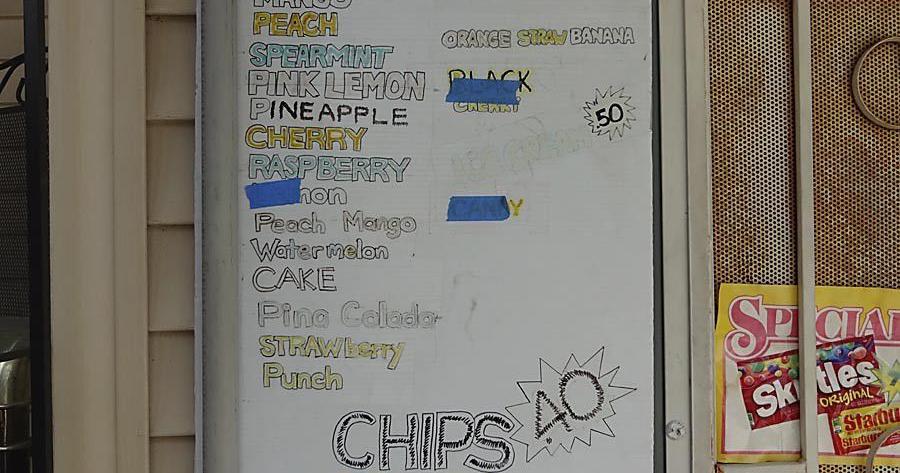 MANGO
PEACH
SPEARMINT
PINK LEMON
PINEAPPLE
CHERRY
RASPBERRY
mon
Peach Mango
Watermelon
CAKE
Pina Colada
STRAWberry
Punch
ORANGE STRAW BANANA
BLACK
CHERRY
50
ICE CREAM
CANDY
CHIPS 40
SPECIAL
Skittles
ORIGINAL
Starbu
Starbu